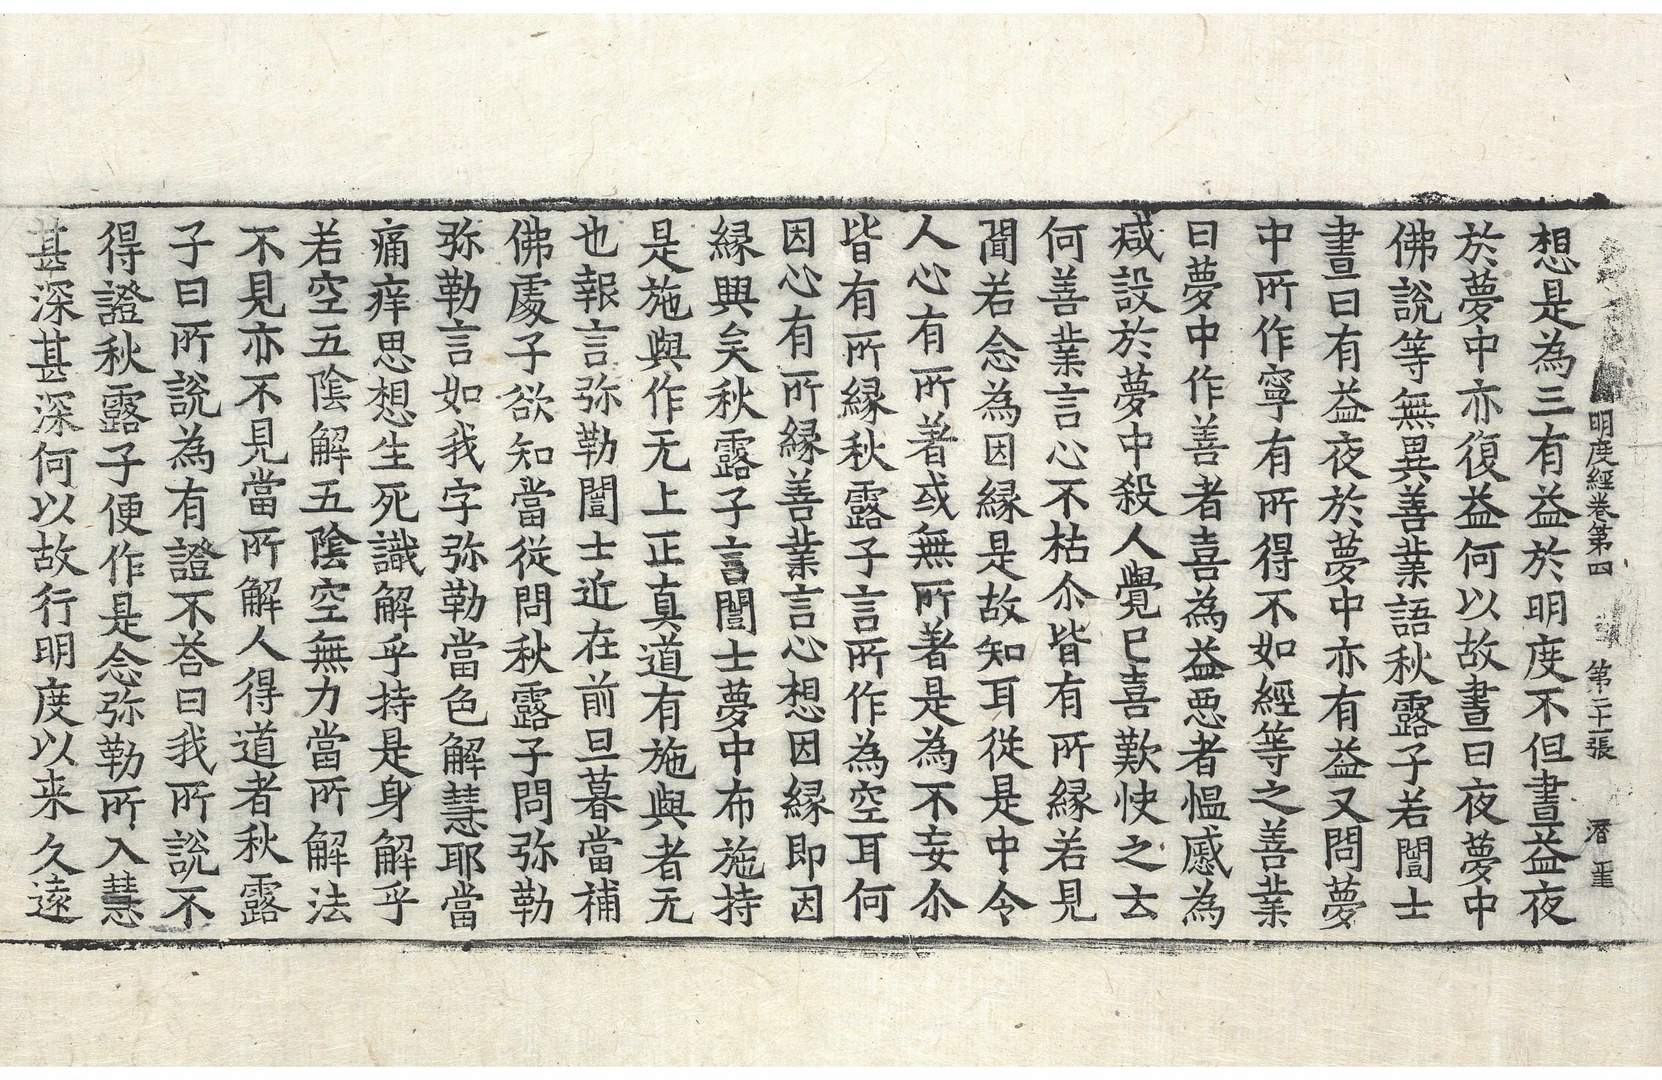 明度經卷第四 第二十一張 潛 重
想是為三有益於明度不但晝益夜
於夢中亦復益何以故晝日夜夢中
佛說等無異善業語秋露子若闓士
晝日有益夜於夢中亦有益又問夢
中所作寧有所得不如經等之善業
曰夢中作善者喜為益惡者愠慼為
減設於夢中殺人覺已喜歎快之云
何善業言心不枯尒皆有所縁若見
聞若念為因縁是故知耳從是中令
人心有所著或無所著是為不妄尒
皆有所縁秋露子言所作為空耳何
因心有所縁善業言心想因縁即因
縁興矣秋露子言闓士夢中布施持
是施與作无上正真道有施與者无
也報言弥勒闓士近在前旦暮當補
佛處子欲知當從問秋露子問弥勒
弥勒言如我字弥勒當色解慧耶當
痛痒思想生死識解乎持是身解乎
若空五陰解五陰空無力當所解法
不見亦不見當所解人得道者秋露
子曰所說為有證不荅曰我所說不
得證秋露子便作是念弥勒所入慧
甚深甚深何以故行明度以来久遠